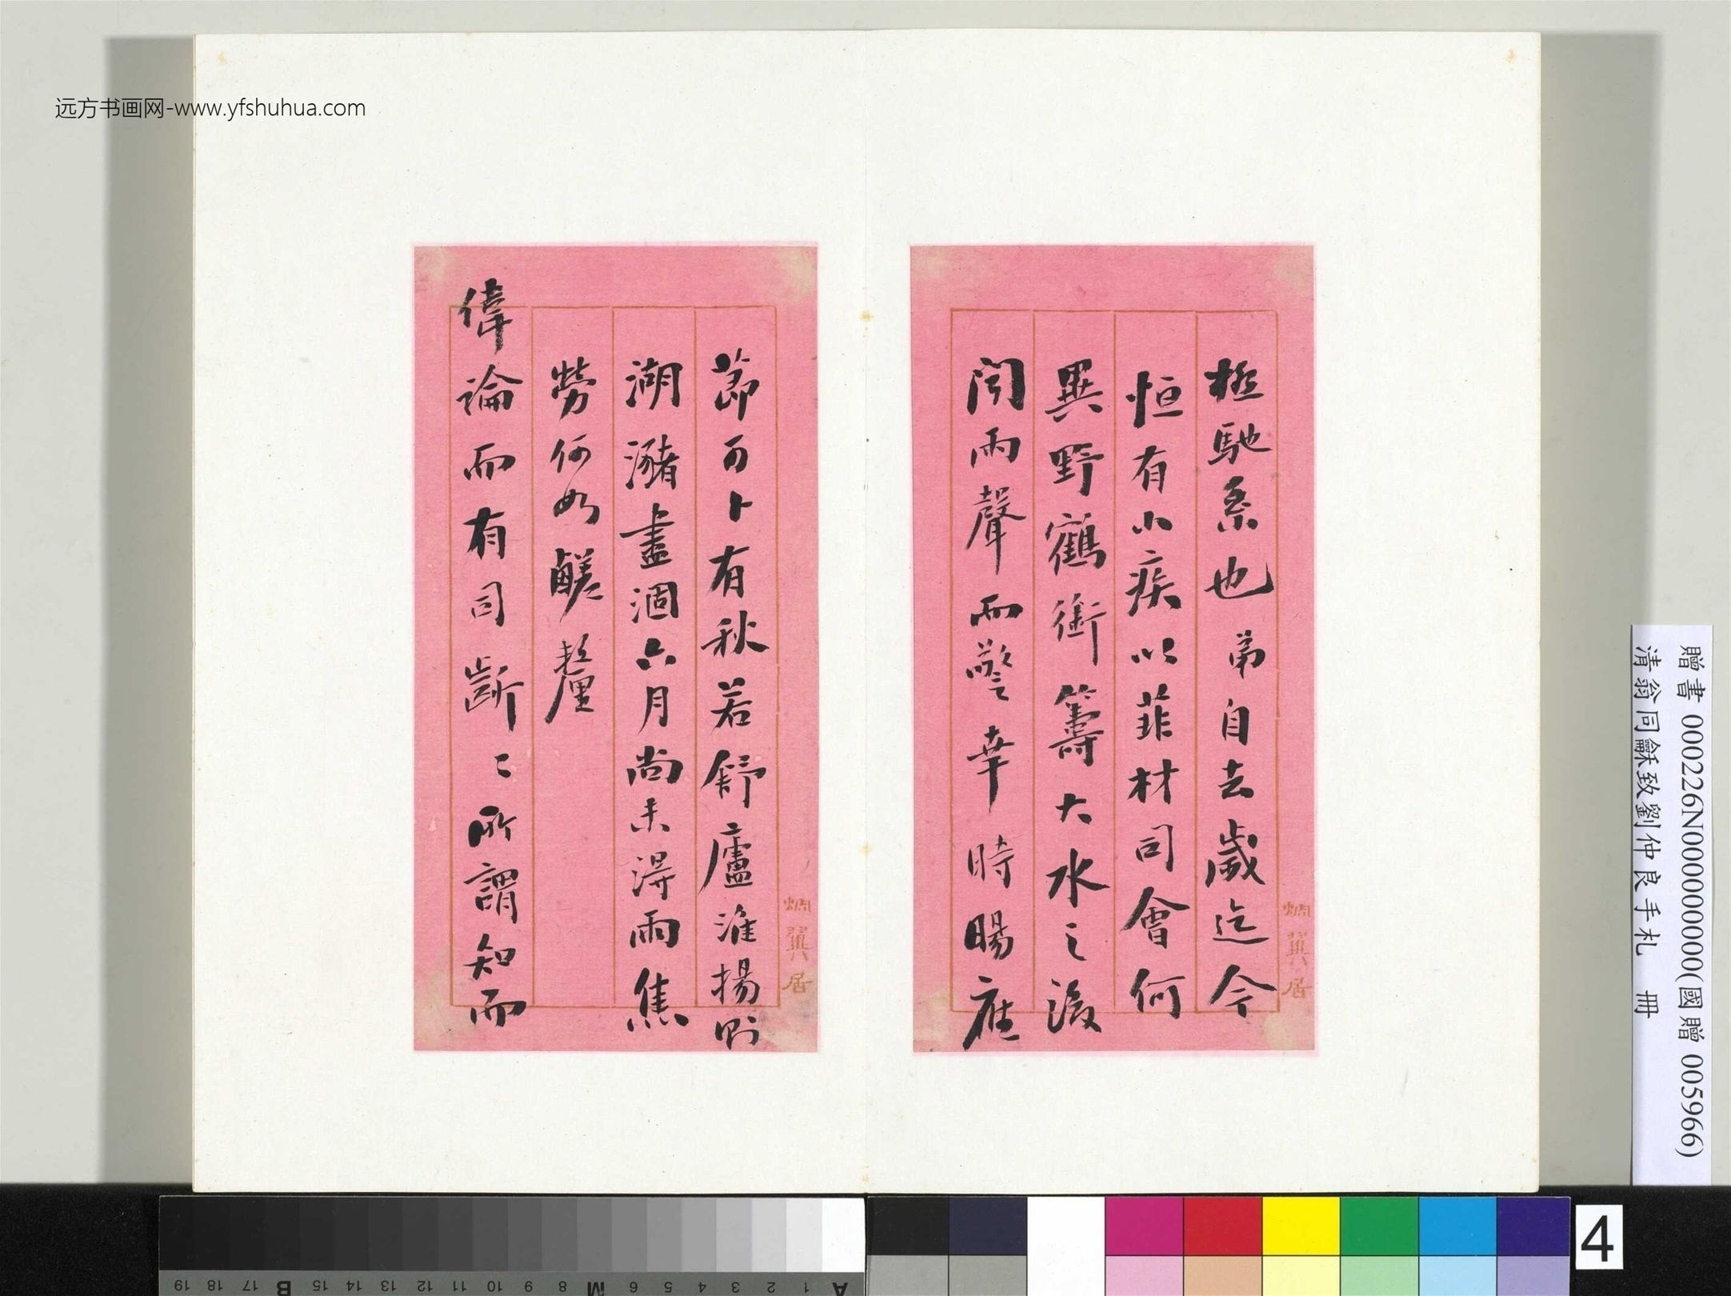 远方书画网-www.yfshuhua.com
極馳系也弟自去歲迄今
恒有小疾以菲材司會何
異野鶴銜籌大水之後
聞雨聲而驚幸時暘應
節可卜有秋若舒廬淮揚則
湖瀦盡涸六月尚未得雨焦
勞何如鹺釐
偉論而有同斷〻所謂知而
居
居
贈書 000226N000000000(國贈 005966)
清翁同龢致劉仲良手札 冊
4
A 1 2 3 4 5 6 M 8 9 10 11 12 13 14 15 B 17 18 19